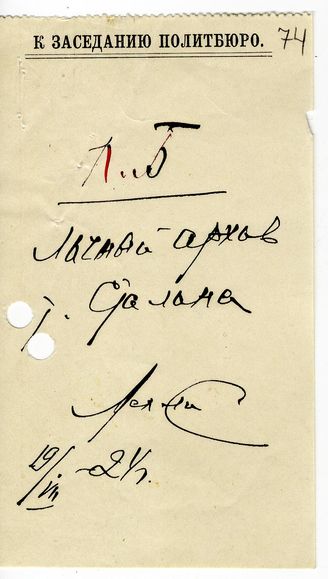 К ЗАСЕДАНИЮ ПОЛИТБЮРО. 74
П.Б
Личный архив
т. Сталина
19/VIII -24г.